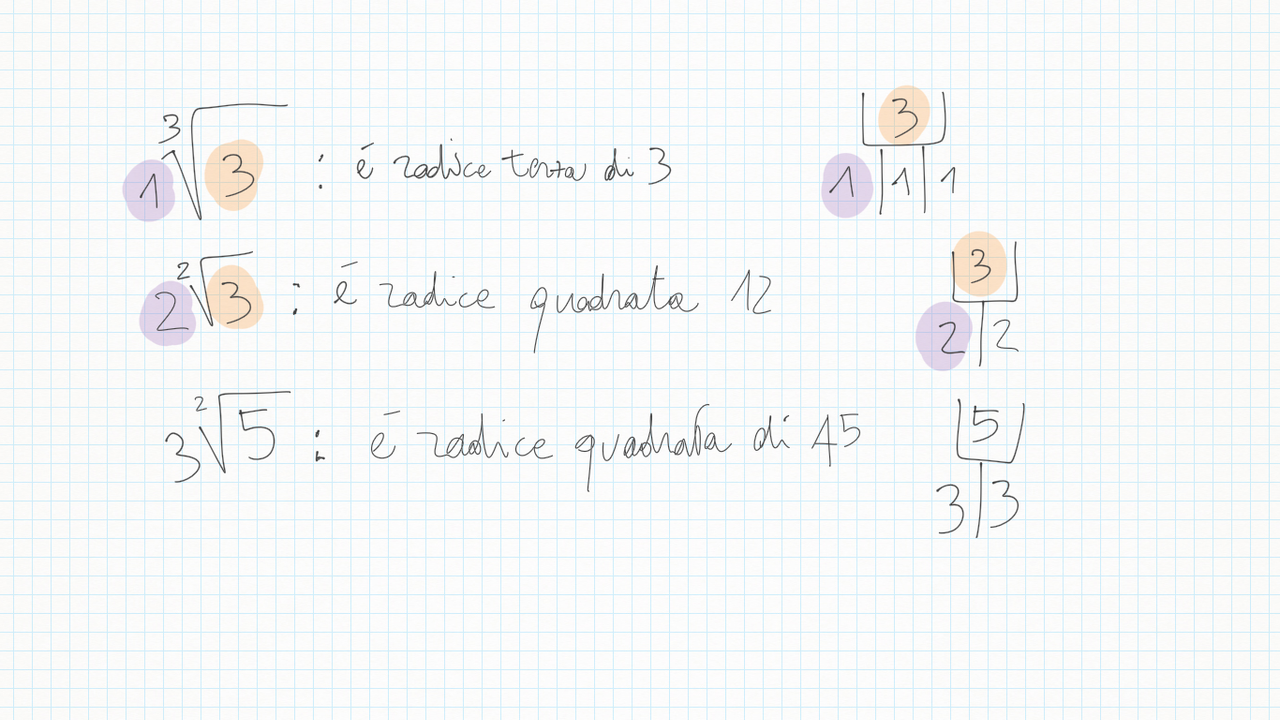 1 ³√3 : é radice terza di 3
3
1 | 1 | 1
2 ²√3 : é radice quadrata 12
3
2 | 2
3 ²√5 : é radice quadrata di 45
5
3 | 3